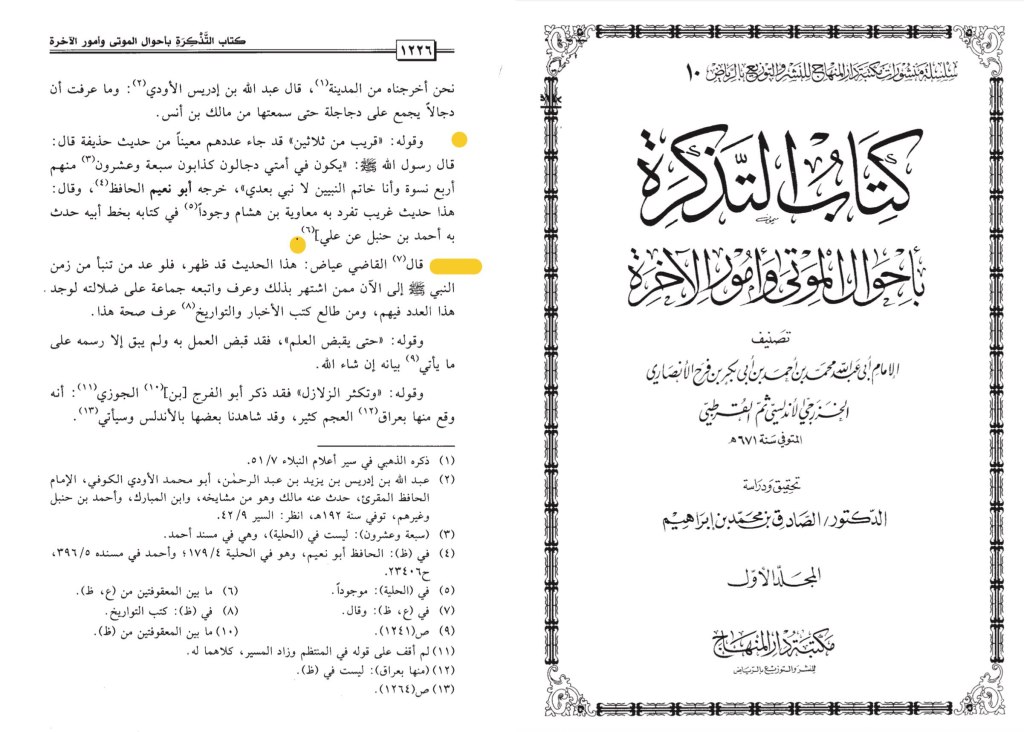 سلسلة منشورات مكتبة دار المنهاج للنشر والتوزيع بالرياض ١٠
كتاب التذكرة
بأحوال الموتى وأمور الآخرة
تصنيف
الإمام أبي عبد الله محمد بن أحمد بن أبي بكر بن فرح الأنصاري
الخزرجي الأندلسي ثم القرطبي
المتوفى سنة ٦٧١هـ
تحقيق ودراسة
الدكتور/الصادق بن محمد بن إبراهيم
المجلد الأول
مكتبة دار المنهاج
للنشر والتوزيع بالرياض
كتاب التَّذْكِرَةِ بأحوال الموتى وأمور الآخرة
١٢٢٦
نحن أخرجناه من المدينة(١)، قال عبد الله بن إدريس الأودي(٢): وما عرفت أن
دجالاً يجمع على دجاجلة حتى سمعتها من مالك بن أنس.
وقوله: «قريب من ثلاثين» قد جاء عددهم معيناً من حديث حذيفة قال:
قال رسول الله ﷺ: «يكون في أمتي دجالون كذابون سبعة وعشرون(٣) منهم
أربع نسوة وأنا خاتم النبيين لا نبي بعدي»، خرجه أبو نعيم الحافظ(٤)، وقال:
هذا حديث غريب تفرد به معاوية بن هشام وجوداً(٥) في كتابه بخط أبيه حدث
به أحمد بن حنبل عن علي](٦).
قال(٧) القاضي عياض: هذا الحديث قد ظهر، فلو عد من تنبأ من زمن
النبي ﷺ إلى الآن ممن اشتهر بذلك وعرف واتبعه جماعة على ضلالته لوجد
هذا العدد فيهم، ومن طالع كتب الأخبار والتواريخ(٨) عرف صحة هذا.
وقوله: «حتى يقبض العلم»، فقد قبض العمل به ولم يبق إلا رسمه على
ما يأتي(٩) بيانه إن شاء الله.
وقوله: «وتكثر الزلازل» فقد ذكر أبو الفرج [بن](١٠) الجوزي(١١): أنه
وقع منها بعراق(١٢) العجم كثير، وقد شاهدنا بعضها بالأندلس وسيأتي(١٣).
(١) ذكره الذهبي في سير أعلام النبلاء ٥١/٧.
(٢) عبد الله بن إدريس بن يزيد بن عبد الرحمٰن، أبو محمد الأودي الكوفي، الإمام
الحافظ المقرئ، حدث عنه مالك وهو من مشايخه، وابن المبارك، وأحمد بن حنبل
وغيرهم، توفي سنة ١٩٢هـ، انظر: السير ٤٢/٩.
(٣) (سبعة وعشرون): ليست في (الحلية)، وهي في مسند أحمد.
(٤) في (ظ): الحافظ أبو نعيم، وهو في الحلية ١٧٩/٤؛ وأحمد في مسنده ٣٩٦/٥،
ح٢٣٤٠٦.
(٥) في (الحلية): موجوداً. (٦) ما بين المعقوفتين من (ع، ظ).
(٧) في (ع، ظ): وقال. (٨) في (ظ): كتب التواريخ.
(٩) ص(١٢٤١). (١٠) ما بين المعقوفتين من (ظ).
(١١) لم أقف على قوله في المنتظم وزاد المسير، كلاهما له.
(١٢) (منها بعراق): ليست في (ظ).
(١٣) ص(١٢٦٤).